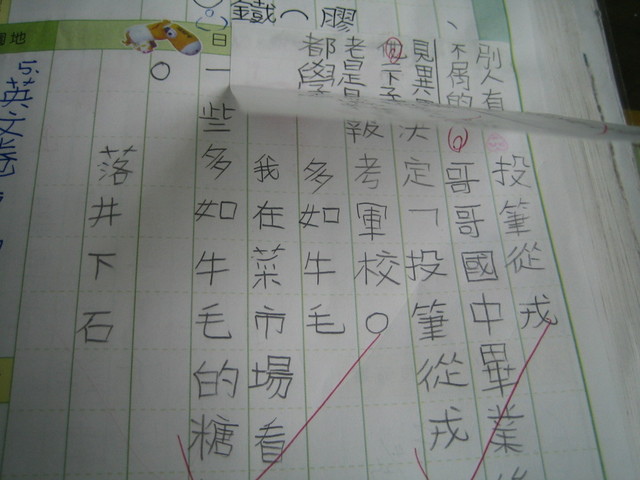 投筆從戎
哥哥國中畢業
決定「投筆從戎
報考軍校。
多如牛毛
我在菜市場看
一些多如牛毛的糖
。
落井下石
別人有
不屑的
見異
老是
都學
鐵(膠
日
5.英文